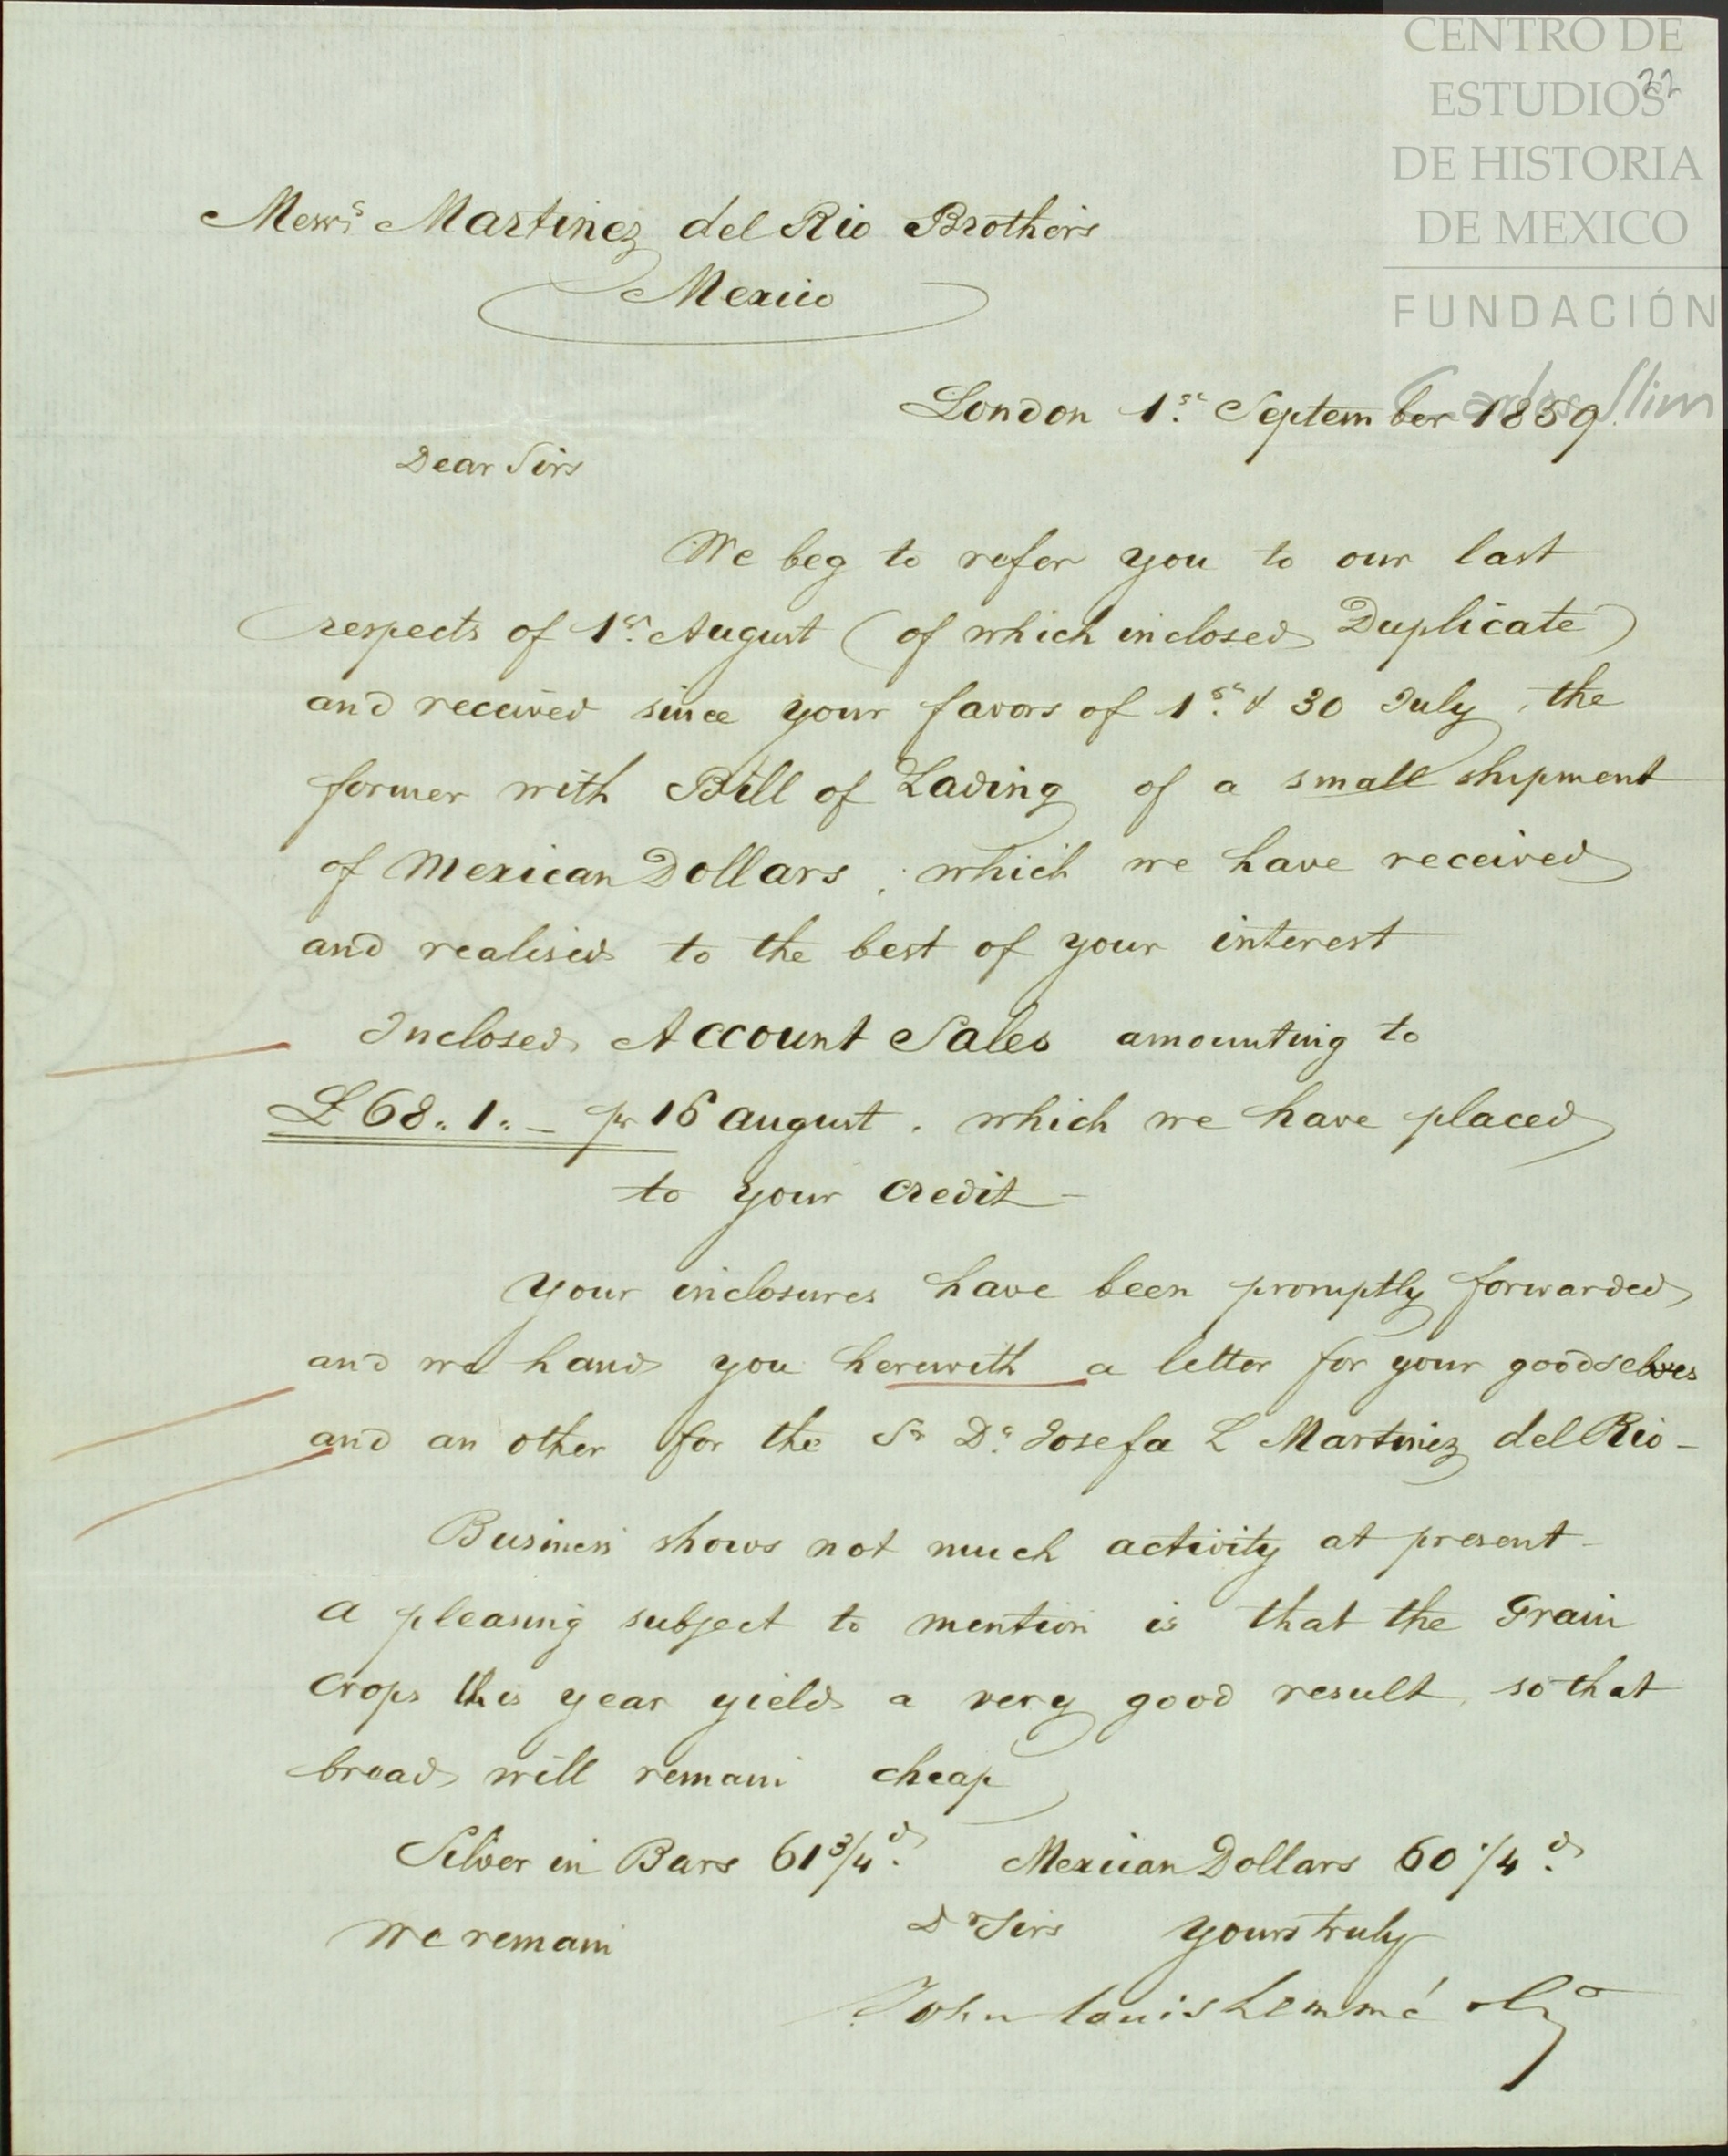 CENTRO DE
ESTUDIOS
22
DE HISTORIA
DE MEXICO
FUNDACIÓN
Carlos Slim
Messrs Martinez del Rio Brothers
Mexico
London 1st September 1859.
Dear Sirs
We beg to refer you to our last
respects of 1st August (of which inclosed Duplicate)
and received since your favors of 1st & 30 July, the
former with Bill of Lading of a small shipment
of Mexican Dollars, which we have received
and realised to the best of your interest
Inclosed Account Sales amounting to
£68.. 1.. – pr 16 August. which we have placed
to your credit –
Your inclosures have been promptly forwarded
and we hand you herewith a letter for your goodselves
and an other for the Sra Da Josefa L Martinez del Rio –
Business shows not much activity at present –
a pleasing subject to mention is that the Grain
crops this year yields a very good result, so that
bread will remain cheap
Silver in Bars 61 3/4 d. Mexican Dollars 60 1/4 d.
We remain Dr Sirs yours truly
John Louis Lemmé & Co